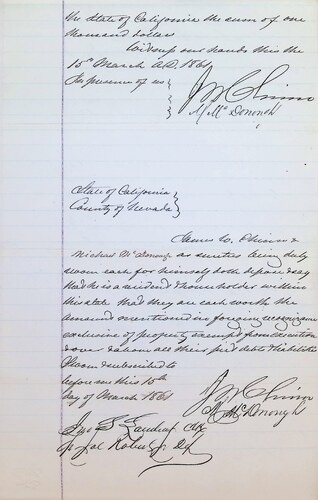 the State of California the sum of one
thousand dollars
Witness our hands this the
15th March A.D. 1861
In presence of us }
M McDonough
State of California }
County of Nevada }
James W. Chinn &
Michael McDonough as sureties being duly
sworn each for himself doth depose & say
that he is a resident & householder within
this state that they are each worth the
amount mentioned in foregoing recognizance
exclusive of property exempt from execution
& over & above all their just debts & liabilities
Sworn & subscribed to
before me this 15th
day of March 1861
M McDonough